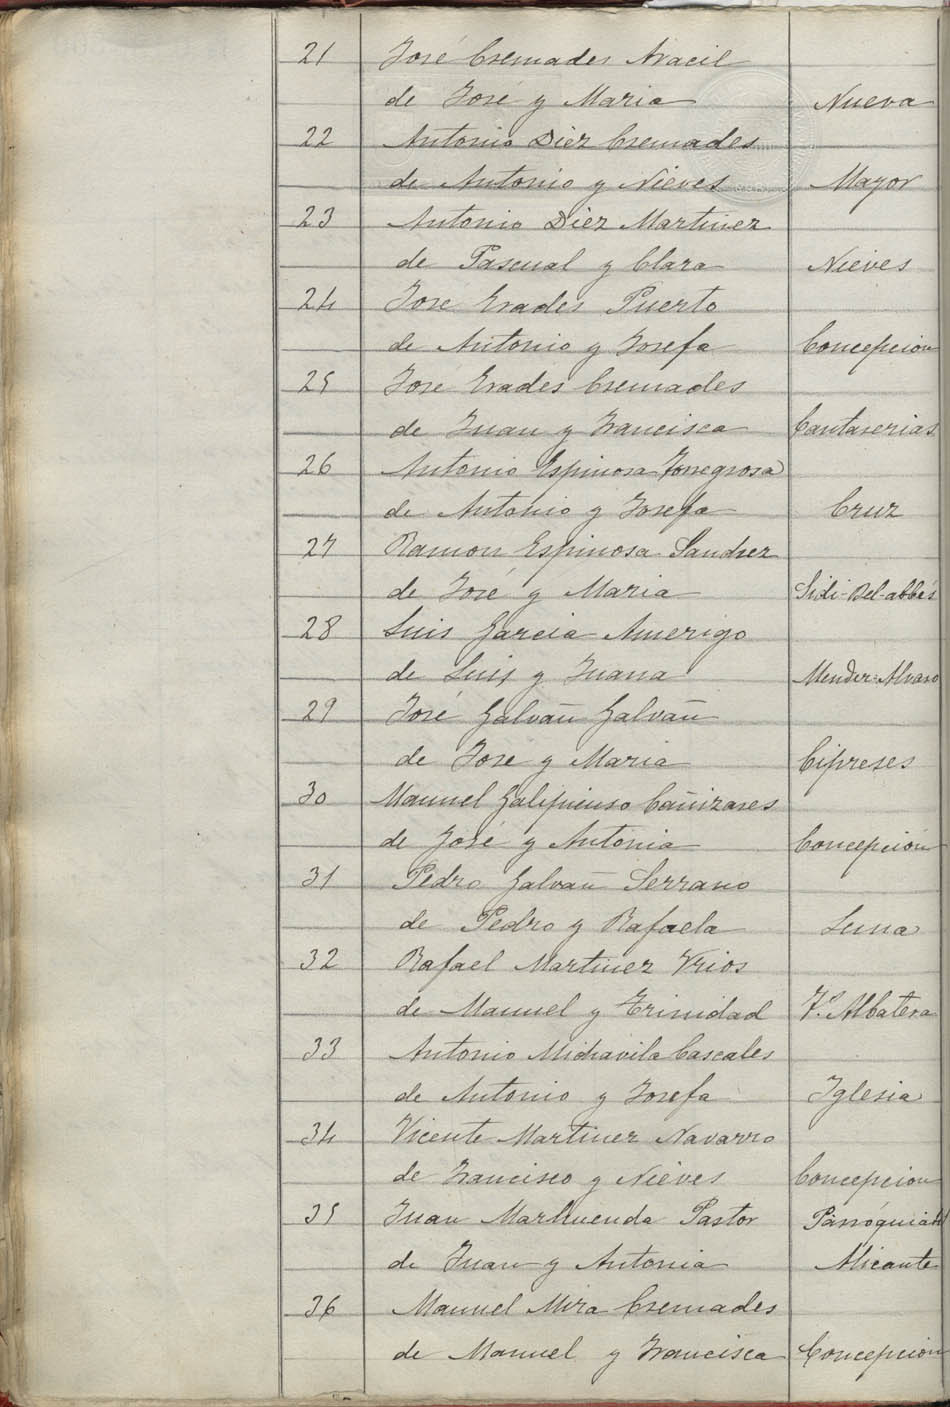 21 José Cremades Aracil
de José y Maria Nueva
22 Antonio Diez Cremades
de Antonio y Nieves Mayor
23 Antonio Diez Martinez
de Pascual y Clara Nieves
24 Jose Erades Puerto
de Antonio y Josefa Concepcion
25 Jose Erades Cremades
de Juan y Francisca Cantarerias
26 Antonio Espinosa Torregrosa
de Antonio y Josefa Cruz
27 Ramon Espinosa Sanchez
de José y Maria Sidi-Bel-abbés
28 Luis Garcia Amerigo
de Luis y Juana Mendez-Alvaro
29 José Galvañ Galvañ
de José y Maria Cipreses
30 Manuel Galipienso Cañizares
de José y Antonia Concepción
31 Pedro Galvañ Serrano
de Pedro y Rafaela
32 Rafael Martinez Vrios
de Manuel y Trinidad Albatera
33 Antonio Michavila Cascales
de Antonio y Josefa Iglesia
34 Vicente Martinez Navarro
de Francisco y Nieves Concepcion
35 Juan Marhuenda Pastor
de Juan y Antonia Alicante
36 Manuel Mira Cremades
de Manuel y Francisca Concepcion